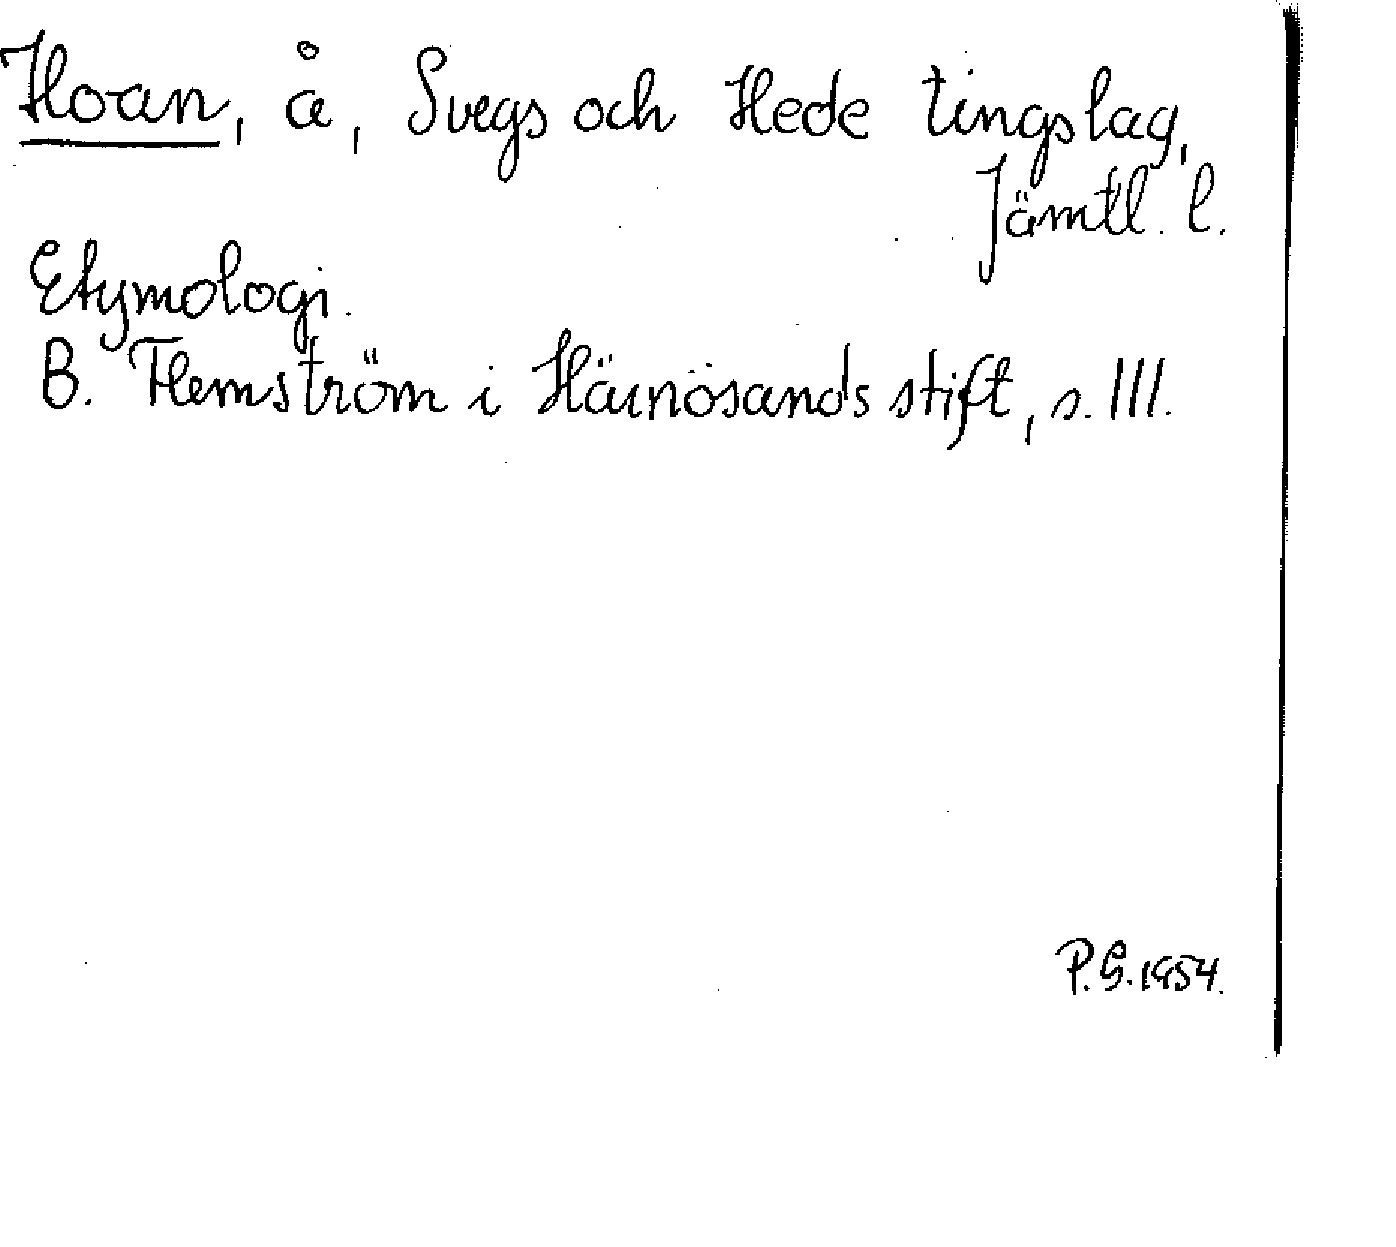 Hoan, å, Svegs och Hede tingslag,
Jämtl. l.
Etymologi.
B. Flemström i Härnösands stift, s. 111.
P.G. 1954.